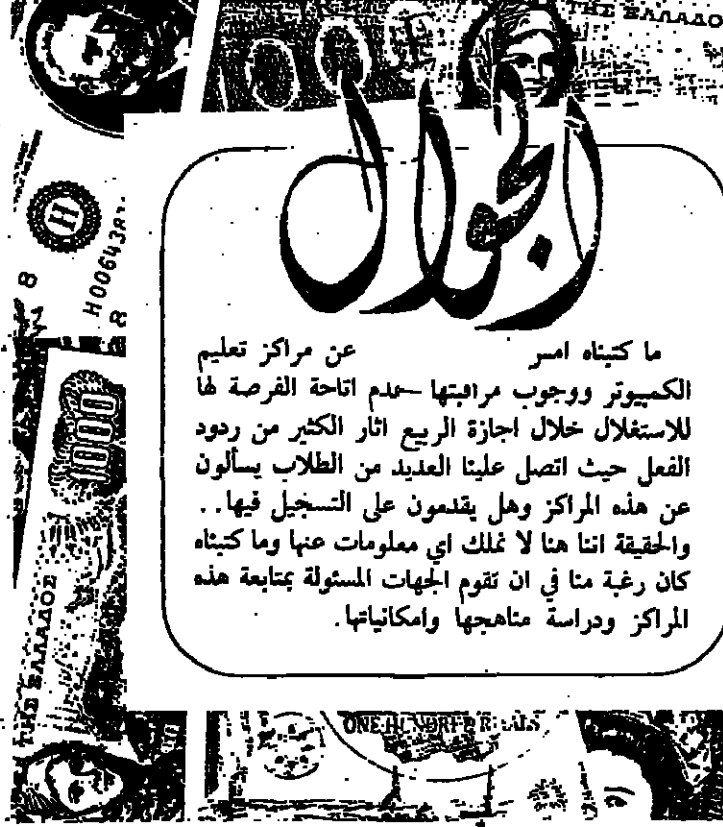 ΤΗΣ ΕΛΛΑΔΟ
الجوال
H
8
1000
ما كتبناه امس عن مراكز تعليم
الكمبيوتر ووجوب مراقبتها عدم اتاحة الفرصة لها
للاستغلال خلال اجازة الربيع اثار الكثير من ردود
الفعل حيث اتصل علينا العديد من الطلاب يسألون
عن هذه المراكز وهل يقدمون على التسجيل فيها..
والحقيقة اننا هنا لا نملك اي معلومات عنها وما كتبناه
كان رغبة منا في ان تقوم الجهات المسئولة بمتابعة هذه
المراكز ودراسة مناهجها وامكانياتها.
ΤΗΣ ΕΛΛΑΔΟΣ
ONE HUNDRED RIYALS